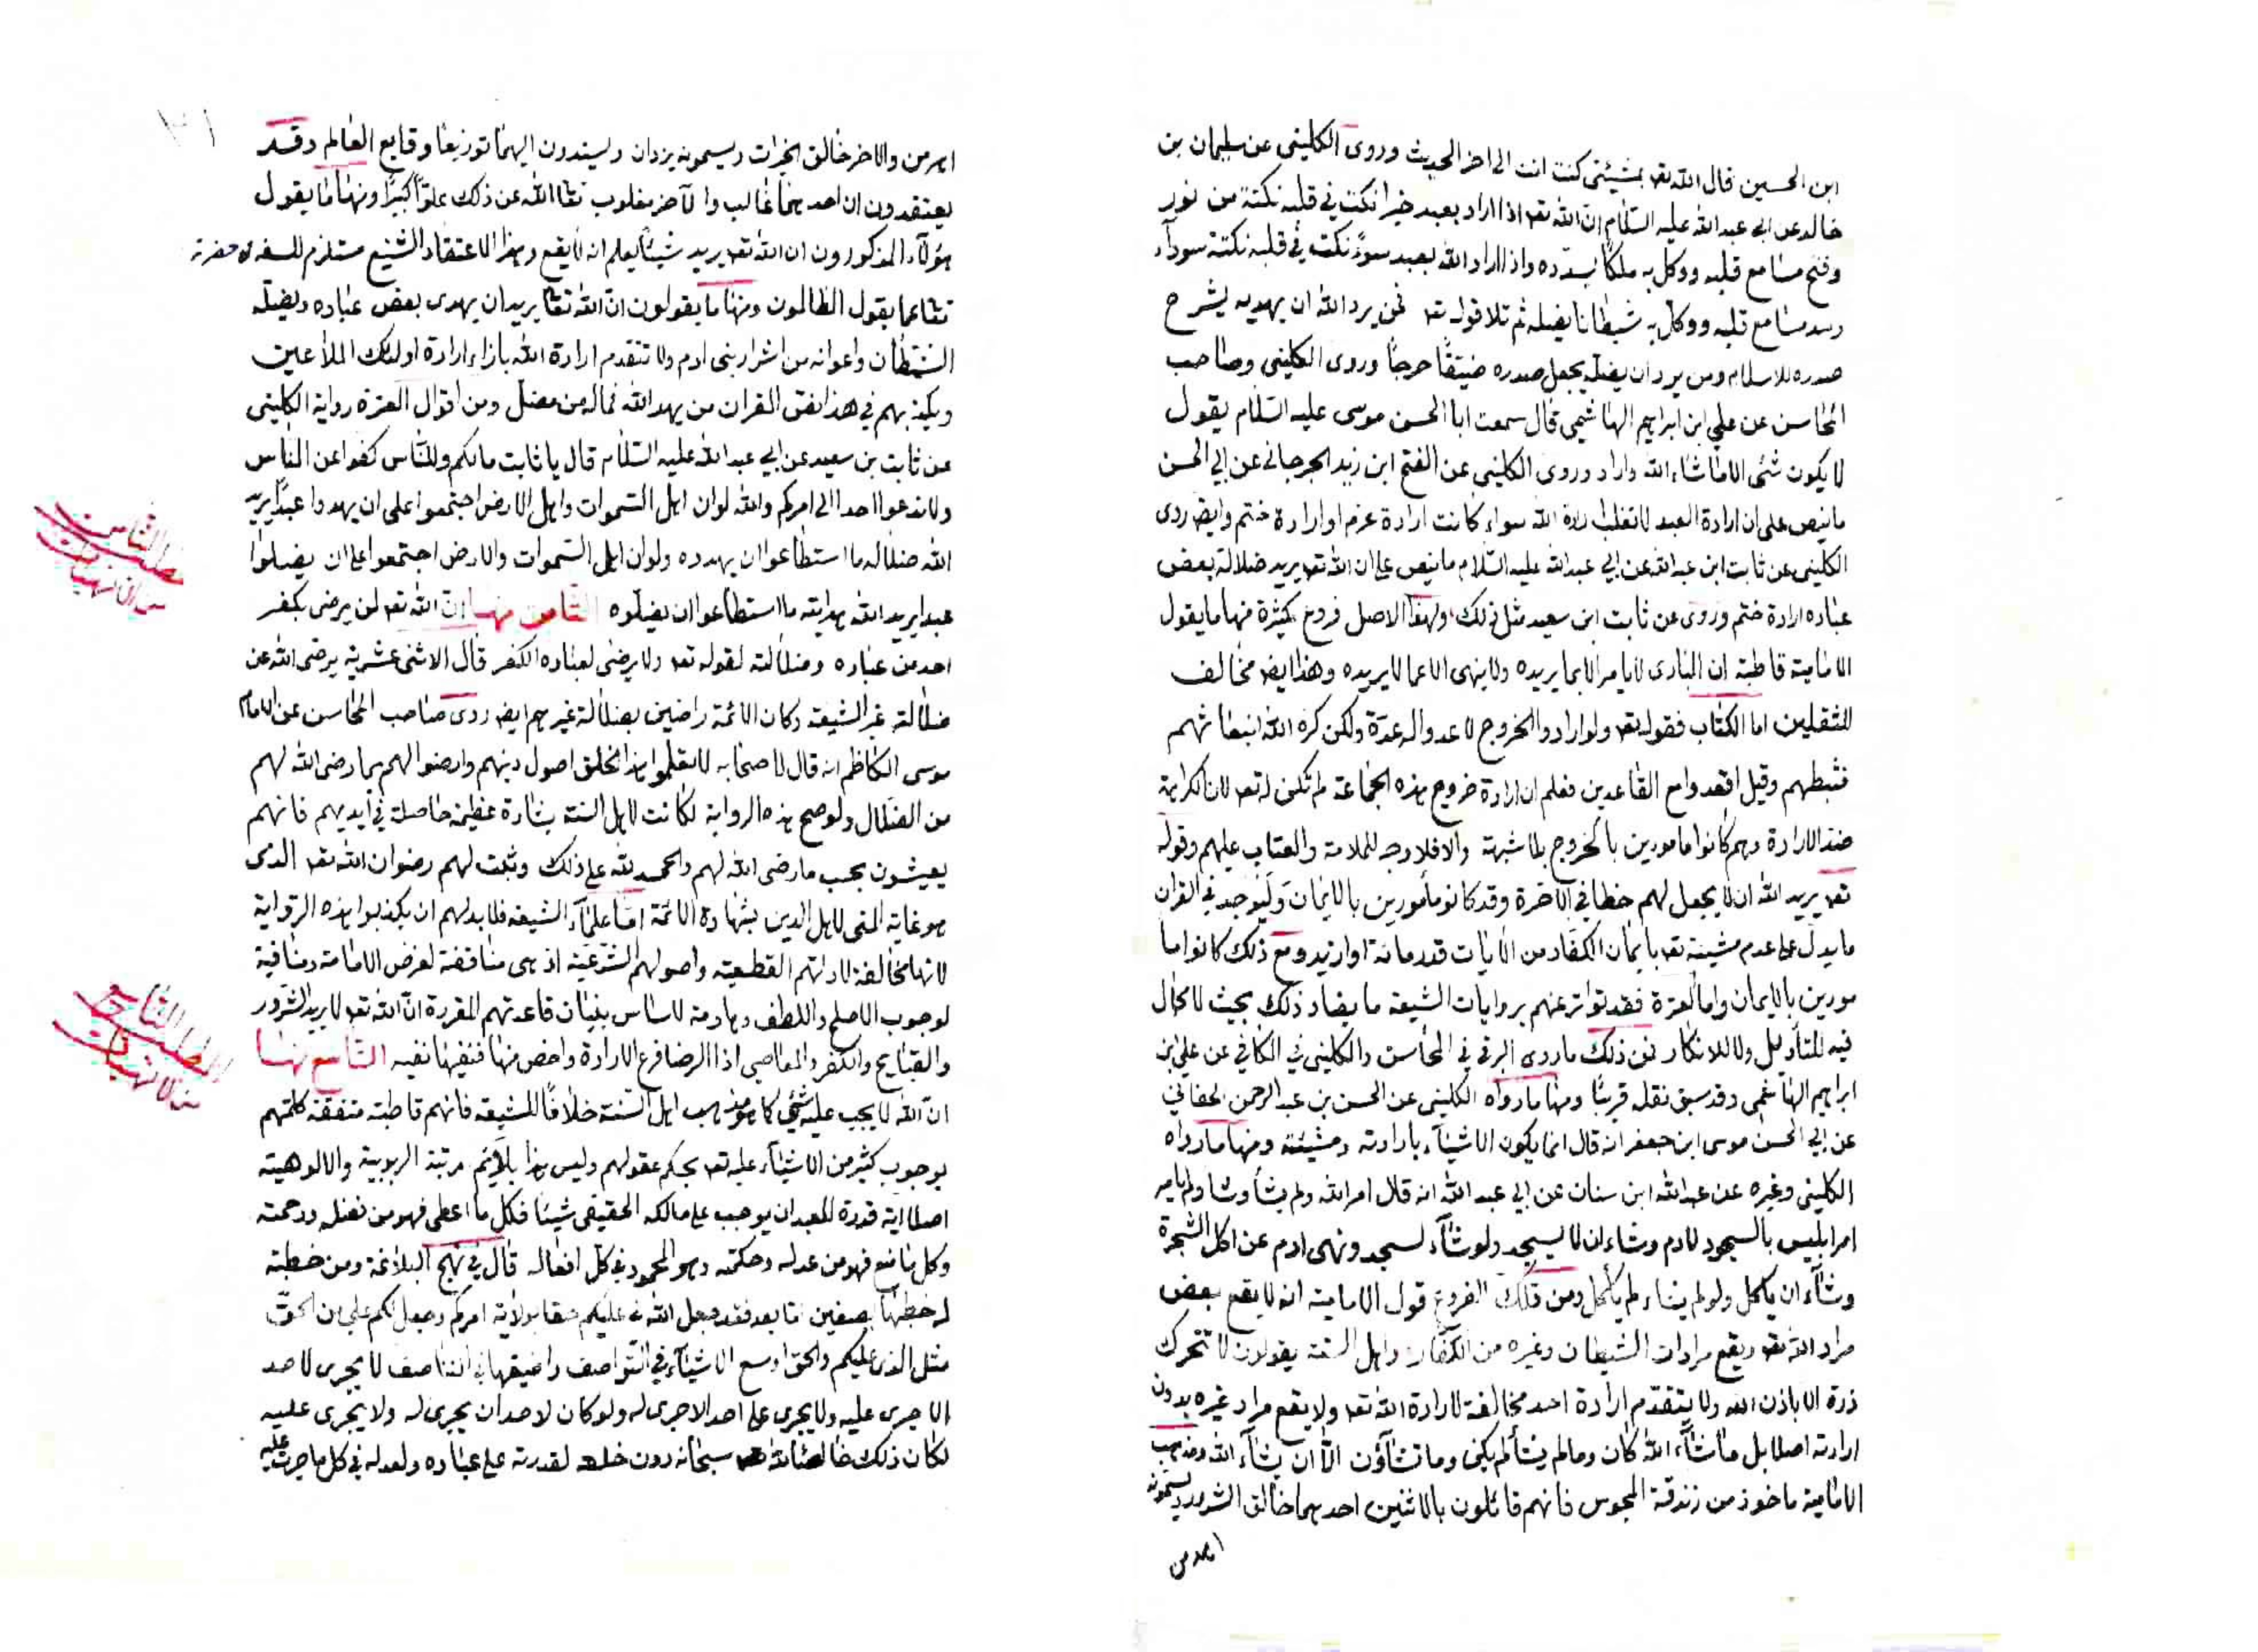 ابن الحسين قال الله تعه بمشيئتى كنت انت الى اخر الحديث وروى الكلينى عن سليمان بن
خالد عن ابى عبد الله عليه السلام ان الله تعه اذا اراد بعبد خيرا نكت في قلبه نكتة من نور
وفتح مسامع قلبه ووكل به ملكا يسدده واذا اراد الله بعبد سوءً نكت في قلبه نكتة سودآء
وسد مسامع قلبه ووكل به شيطانا يضله ثم تلا قوله تعه فمن يرد الله ان يهديه يشرح
صدره للاسلام ومن يرد ان يضله يجعل صدره ضيّقًا حرجًا وروى الكلينى وصاحب
المحاسن عن علي ابن ابراهيم الهاشمي قال سمعت ابا الحسن موسى عليه السلام يقول
لا يكون شئى الا ما شاء الله واراد وروى الكلينى عن الفتح ابن زيد الجرجانى عن ابي الحسن
ما ينص على ان ارادة العبد لا تغلب ارادة الله سواء كانت ارادة عزم او ارادة ختم وايضه روى
الكلينى عن ثابت ابن عبد الله عن ابي عبد الله عليه السلام ما ينص على ان الله تعه يريد ضلالة بعض
عباده ارادة ختم وروى عن ثابت ابن سعيد مثل ذلك ولهذا الاصل فروع كثيرة منها ما يقول
الامامية قاطبة ان البارى لا يامر الا بما يريده ولا ينهى الا عما لا يريده وهذا ايضه مخالف
للثقلين اما الكتاب فقوله تعه ولو ارادوا الخروج لاعدوا له عدّة ولكن كره الله انبعاثهم
فثبطهم وقيل اقعدوا مع القاعدين فعلم ان ارادة خروج هذه الجماعة لم تكن له تعه لان الكراهة
ضد الارادة وهم كانوا مامورين بالخروج بلا شبهة والا فلا وجه للملامة والعتاب عليهم وقوله
تعه يريد الله ان لا يجعل لهم حظا في الآخرة وقد كانو مأمورين بالايمان وليوجد في القران
ما يدل على عدم مشيئته تعه بايمان الكفار من الايات قدر مائة او ازيد ومع ذلك كانوا ما
مورين بالايمان واما العترة فقد تواتر عنهم بروايات الشيعة ما يضاد ذلك بحيث لا مجال
فيه للتأويل ولا للانكار فمن ذلك ما روى البرقي في المحاسن والكليني في الكافي عن علي ابن
ابراهيم الهاشمى وقد سبق نقله قريبًا ومنها ما رواه الكلينى عن الحسن بن عبد الرحمن الحماني
عن ابي الحسن موسى ابن جعفر انه قال انما يكون الاشيآء بارادته ومشيئته ومنها ما رواه
الكلينى وغيره عن عبد الله ابن سنان عن ابي عبد الله انه قال امر الله ولم يشأ وشا ولم يامر
امر ابليس بالسجود لادم وشاء ان لا يسجد ولو شآء لسجد ونهى ادم عن اكل الشجرة
وشآء ان ياكل ولو لم يشاء لم ياكل ومن تلك الفروع قول الامامية انه لا يقع بعض
مراد الله تعه ويقع مرادات الشيطان وغيره من الكفار واهل السنة يقولون لا تتحرك
ذرة الا باذن الله ولا يتقدّم ارادة احد مخالفة لارادة الله تعه ولا يقع مراد غيره بدون
ارادته اصلا بل ما شآء الله كان وما لم يشأ لم يكن وما تشآؤن الّا ان يشآء الله ومذهب
الامامية ماخوذ من زندقة المجوس فانهم قائلون بالاثنين احدهما خالق الشرور ويسمونه
اهرمن
اهرمن والاخر خالق الخيرات ويسمونه يزدان ويسندون اليهما توزيعا وقايع العالم وقد
يعتقدون ان احدهما غالب والآخر مغلوب تعا الله عن ذلك علوًّا كبيرًا ومنها ما يقول
هؤلآء المذكورون ان الله تعه يريد شيئًا يعلم انه لا يقع وهذا الاعتقاد الشنيع مستلزم للسفه في حضرته
تعا عما يقول الظالمون ومنها ما يقولون انّ الله تعا يريد ان يهدى بعض عباده ويضله
الشيطان واعوانه من اشرار بنى ادم ولا تتقدم ارادة الله بازاء ارادة اولئك الملاعين
ويكذبهم في هذا نص القران من يهد الله فماله من مضل ومن اقوال العترة رواية الكلينى
عن ثابت بن سعيد عن ابي عبد الله عليه السلام قال يا ثابت مالكم وللناس كفوا عن الناس
ولا تدعوا احدا الى امركم والله لو ان اهل السموات واهل الارض اجتمعوا على ان يهدوا عبدًا يريد
الله ضلاله ما استطاعوا ان يهدوه ولو ان اهل السموات والارض اجتمعوا على ان يضلوا
عبدا يريد الله هدايته ما استطاعوا ان يضلوه الثامن منها انّ الله تعه لن يرضى بكفر
احد من عباده وضلالته لقوله تعه ولا يرضى لعباده الكفر قال الاثنى عشرية يرضى الله عن
ضلالة غير الشيعة وكان الائمة راضين بضلالة غيرهم ايضه روى صاحب المحاسن عن الامام
موسى الكاظم انه قال لاصحابه لا تعلموا هذا الخلق اصول دينهم وارضوا لهم بما رضى الله لهم
من الضلال ولو صح هذه الرواية لكانت لاهل السنة بشارة عظيمة حاصلة في ايديهم فانهم
يعيشون بحسب ما رضى الله لهم والحمد لله على ذلك وثبت لهم رضوان الله تعه الذى
هو غاية المنى لاهل الدين بشهادة الائمة امّا علمآء الشيعة فلا بد لهم ان يكذبوا هذه الرواية
لانها مخالفة لادلتهم القطعية واصولهم الشرعية اذ هى مناقضة لغرض الامامة ومنافية
لوجوب الاصلح واللطف وهادمة لاساس بنيان قاعدتهم المقررة انّ الله تعه لا يريد الشرور
والقبايح والكفر والمعاصي اذا الرضا فرع الارادة واخص منها فنفيها نفيه التاسع منها
انّ الله لا يجب عليه شئى كما هو مذهب اهل السنة خلافًا للشيعة فانهم قاطبة متفقة كلمتهم
بوجوب كثير من الاشيآء عليه تعه بحكم عقولهم وليس هذا بلايم مرتبة الربوبية والالوهية
اصلا اية قدرة للعبد ان يوجب على مالكه الحقيقى شيئا فكل ما اعطى فهو من فضله ورحمته
وكل ما منع فهو من عدله وحكمته وهو المحمود في كل افعاله قال في نهج البلاغة ومن خطبته
له خطبها بصفين اما بعد فقد جعل الله لى عليكم حقا بولاية امركم وجعل لكم علي من الحقّ
مثل الذى عليكم والحق اوسع الاشيآء في التواصف واضيقها في التناصف لا يجرى لاحد
الا جرى عليه ولا يجرى على احد الا جرى له ولو كان لاحد ان يجرى له ولا يجرى عليه
لكان ذلك خالصا لله سبحانه دون خلقه لقدرته على عباده ولعدله في كل ما جرت عليه
المطلب الثامن
المطلب التاسع